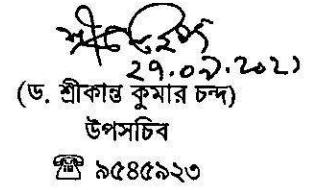 ২৭.০৯.২০২১
(ড. শ্রীকান্ত কুমার চন্দ)
উপসচিব
☎ ৯৫৪৫৯২৩